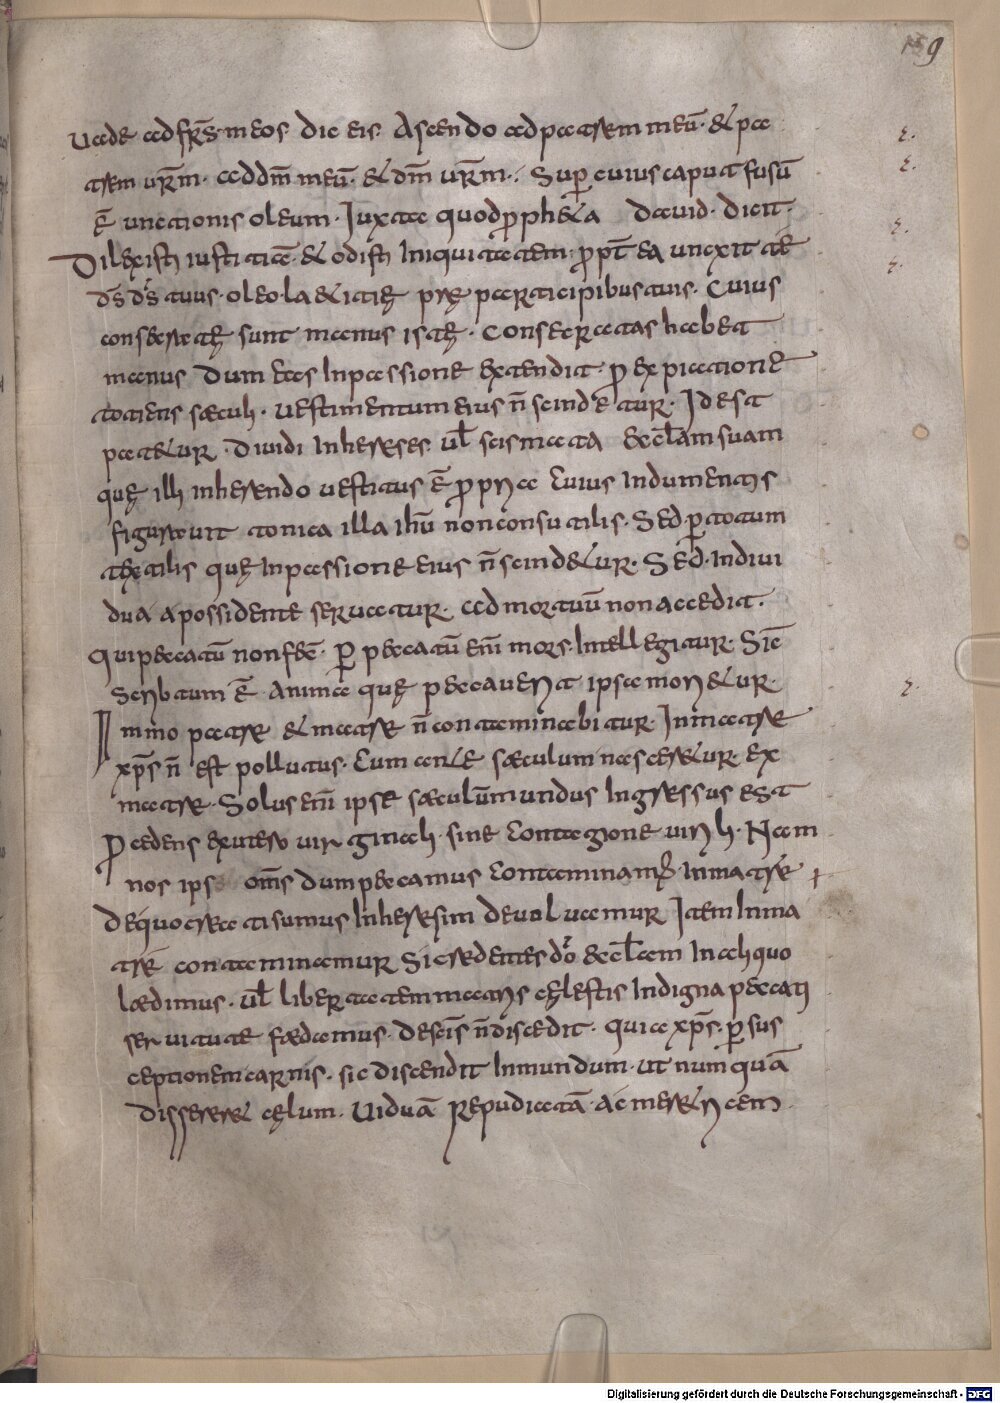 159
uade ad frs̄ meos dic eis Ascendo ad patrem meū · & pa
trem urm̄ · ad dm̄ meū · & dm̄ urm̄ · Sup̄ cuius caput fusū
ē unctionis oleum · Iuxta quod propheta dauid · dicit ·
Dilexisti iustitiā · & odisti Iniquitatem · propt̄ ea unexit tē
ds̄ ds̄ tuus · oleo laetitię prę participibus tuis · Cuius
consecratę sunt manus istę · Consecratas habeat
manus dum eas Inpassione extendit · pro expiatione
totiens sæculi · uestimentum eius n̄ scindetur · Idest
patetur · Diuidi Inhereses · ul̄ scismata eccl̄am suam
quę illi inherendo uestitus ē propria Cuius Indumentis
figurauit tonica illa ihū non consutilis · Sed p̄ totum
thextilis quę Inpassione eius n̄ scindetur · Sed · Indiui
dua a possidente seruatur · ad mortuū non accedit ·
Qui peccatū non fac̄ · p̄ peccatū enī mors · Intellegitur · Sic̄
Scribtum ē · Anima quę peccauerit ipsa morietur ·
Immo patre & matre n̄ contaminabitur · In matre
xp̄s n̄ est pollutus · Cum ante sæculum nasceretur · ex
matre · Solus enī ipse sæculūmundus Ingressus est
Procedens exutero uirginali · sine contagione uirili · Nam
nos ips oms̄ dum peccamus contaminam Inmatrē
Dequo creati sumus Inheresim deuoluamur Item Inma
trē contaminamur Sic redentes dō eccl̄am In aliquo
lædimus · ul̄ libertatem matris cęlestis Indigna peccati
seruitute fædamus · De scīs n̄ discedit · qui a xp̄s · p̄ sus
ceptionem carnis · sic discendit Inmundum · ut num quā
disserere cęlum · Uiduā Repudiatā · ac meretricem
Digitalisierung gefördert durch die Deutsche Forschungsgemeinschaft · DFG